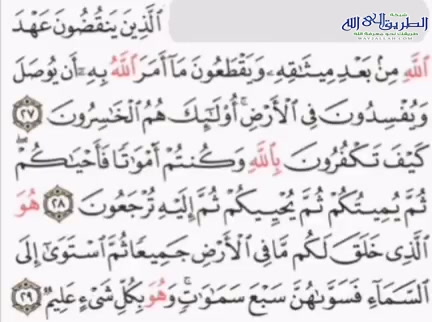 شبكة
الطريق إلى الله
WAY2ALLAH.COM
ٱلَّذِينَ يَنقُضُونَ عَهْدَ
ٱللَّهِ مِنۢ بَعْدِ مِيثَٰقِهِۦ وَيَقْطَعُونَ مَآ أَمَرَ ٱللَّهُ بِهِۦٓ أَن يُوصَلَ
وَيُفْسِدُونَ فِى ٱلْأَرْضِ ۚ أُو۟لَٰٓئِكَ هُمُ ٱلْخَٰسِرُونَ ٢٧
كَيْفَ تَكْفُرُونَ بِٱللَّهِ وَكُنتُمْ أَمْوَٰتًا فَأَحْيَٰكُمْ ۖ
ثُمَّ يُمِيتُكُمْ ثُمَّ يُحْيِيكُمْ ثُمَّ إِلَيْهِ تُرْجَعُونَ ٢٨ هُوَ
ٱلَّذِى خَلَقَ لَكُم مَّا فِى ٱلْأَرْضِ جَمِيعًا ثُمَّ ٱسْتَوَىٰٓ إِلَى
ٱلسَّمَآءِ فَسَوَّىٰهُنَّ سَبْعَ سَمَٰوَٰتٍ ۚ وَهُوَ بِكُلِّ شَىْءٍ عَلِيمٌ ٢٩